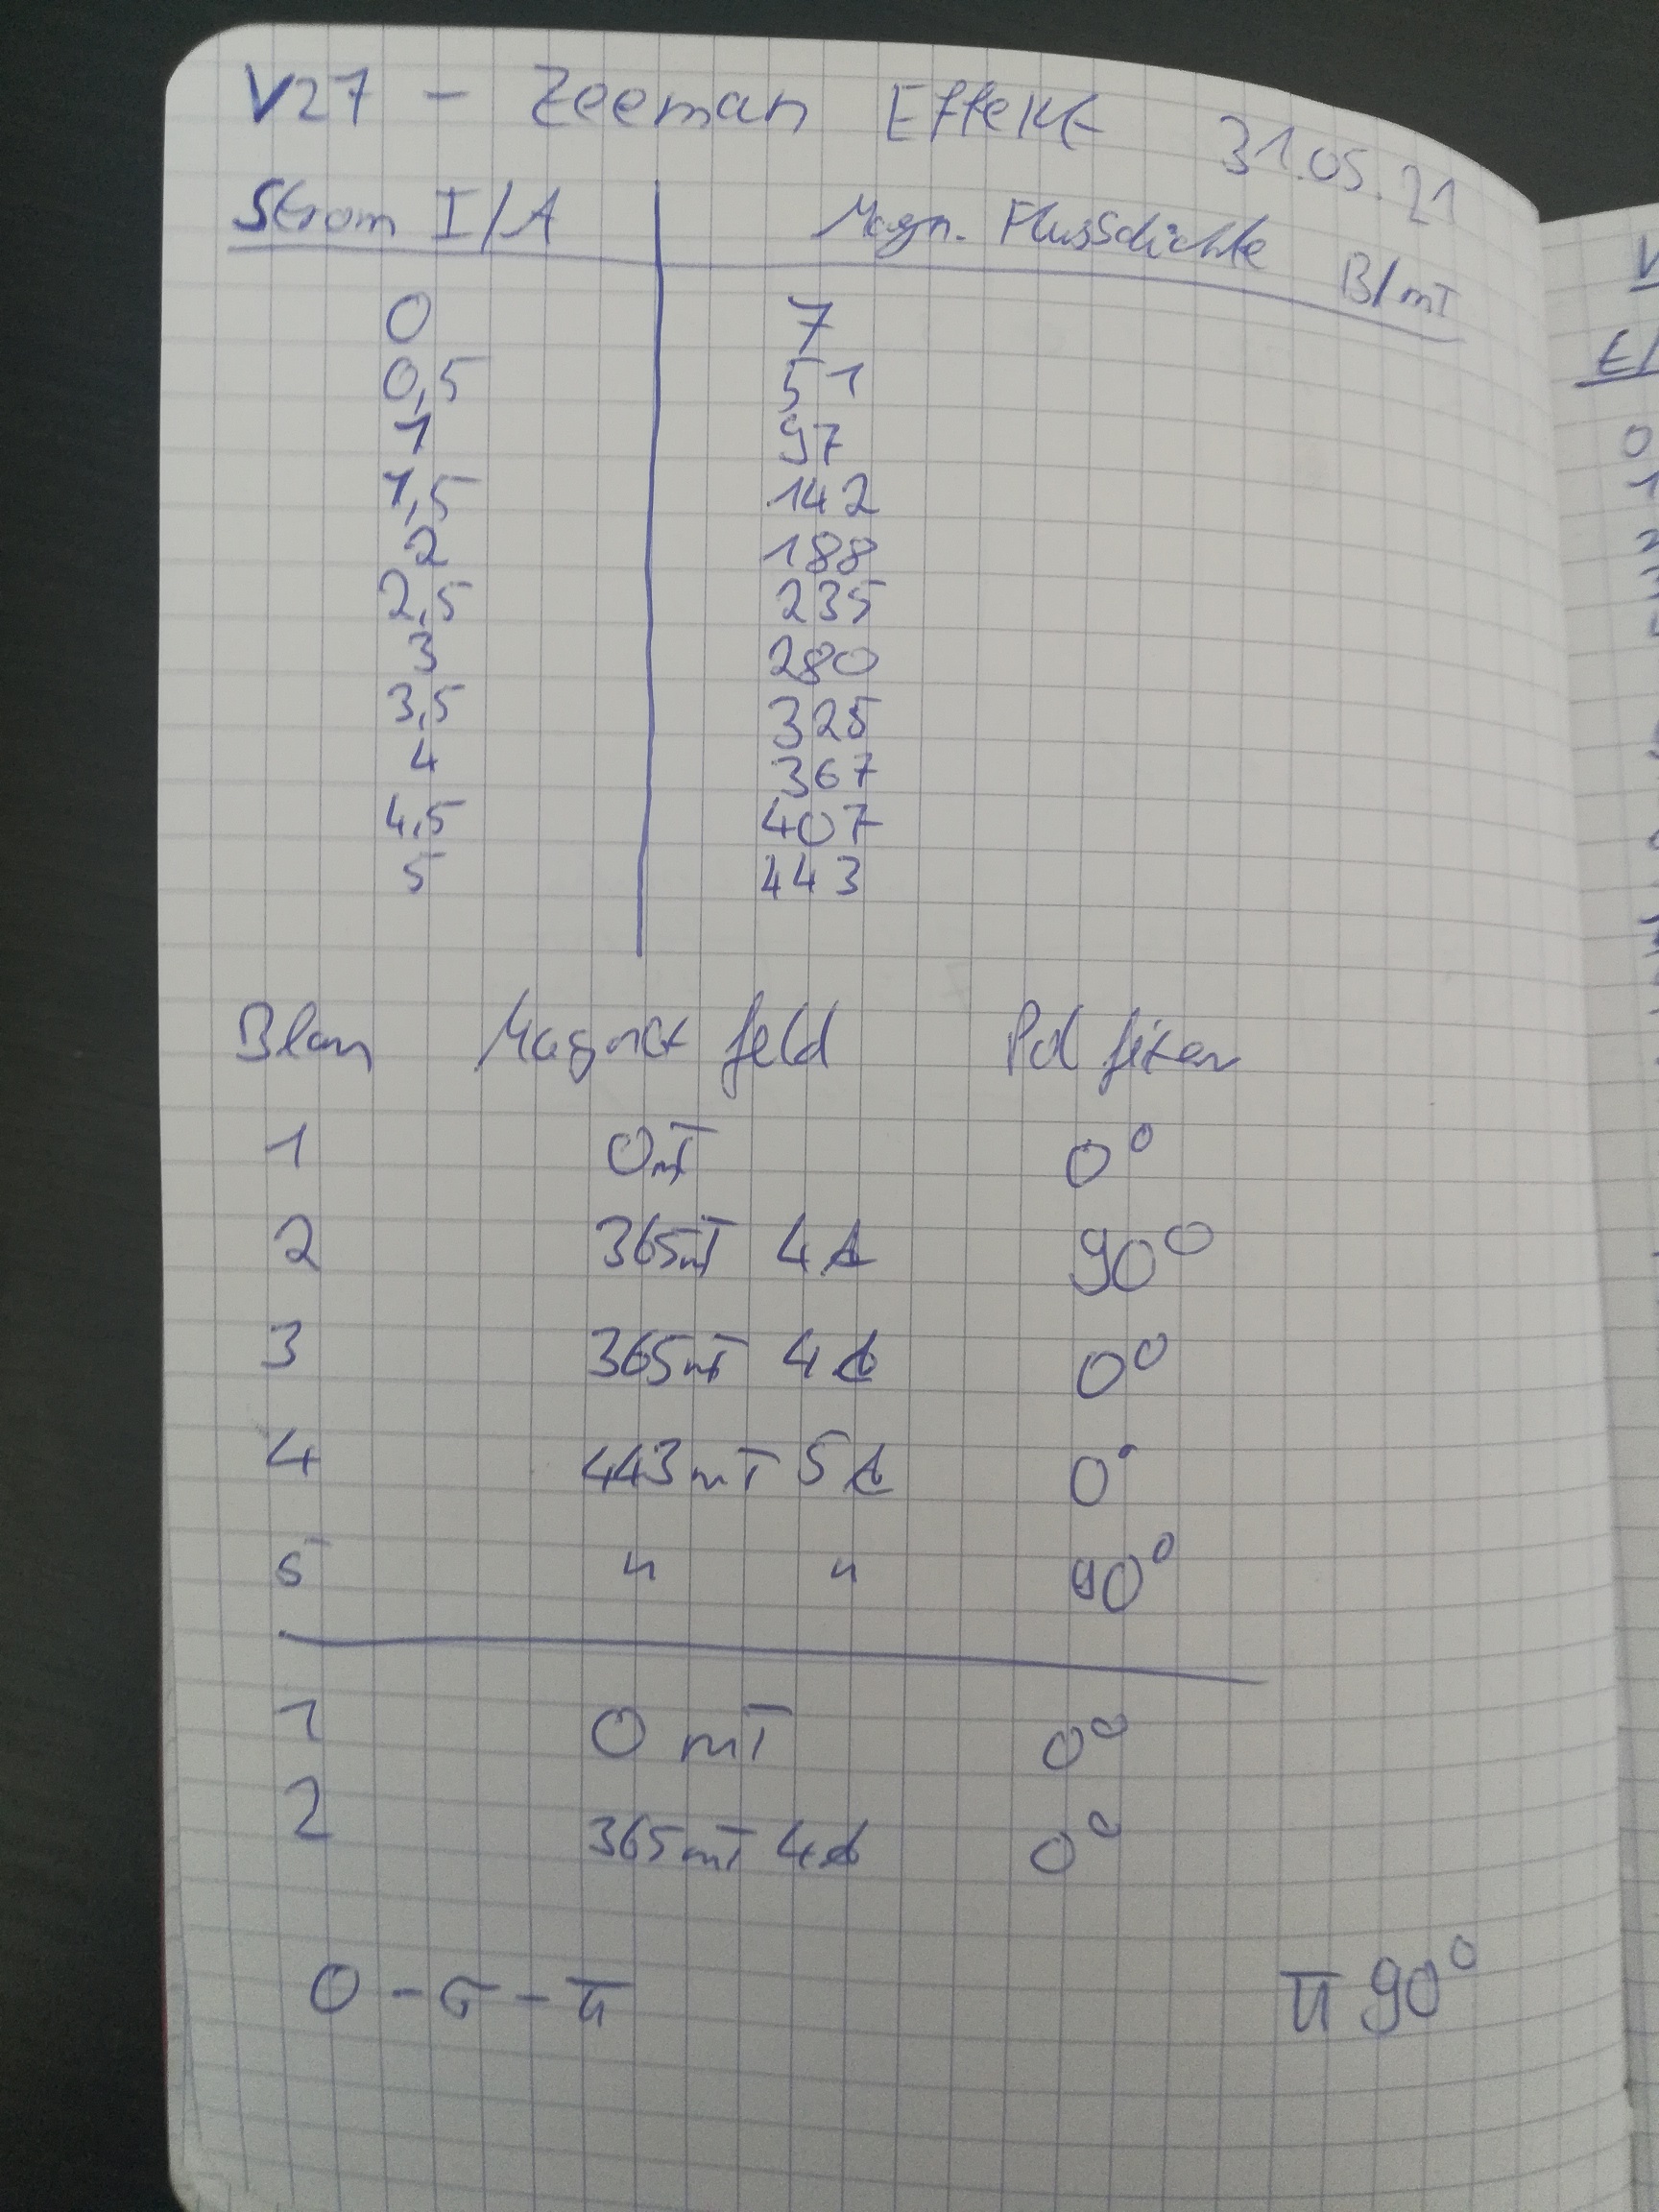 V27 - Zeeman Effekt 31.05.21
Strom I/A Magn. Flussdichte B/mT
0 7
0,5 51
1 97
1,5 142
2 188
2,5 235
3 280
3,5 325
4 367
4,5 407
5 443
Blau Magnetfeld Polfilter
1 0mT 0°
2 365mT 4A 90°
3 365mT 4A 0°
4 443mT 5A 0°
5 " " 90°
1 0 mT 0°
2 365mT 4A 0°
0 - σ - π π 90°